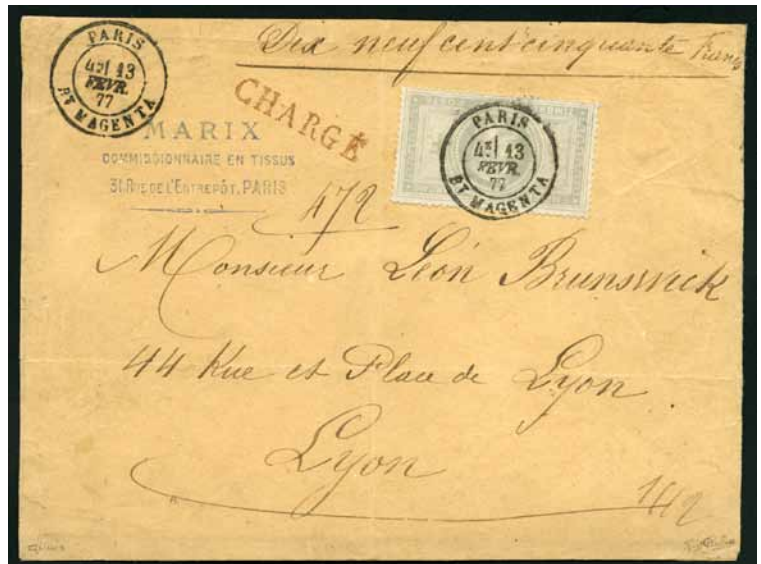 PARIS
4E/ 13
FEVR.
77
BT MAGENTA
Dix neuf cent cinquante Francs
CHARGÉ
MARIX
COMMISSIONNAIRE EN TISSUS
31. RUE DE L'ENTREPÔT. PARIS
PARIS
4E/ 13
FEVR.
77
BT MAGENTA
472
Monsieur Léon Brunswick
44 Rue et Place de Lyon
Lyon